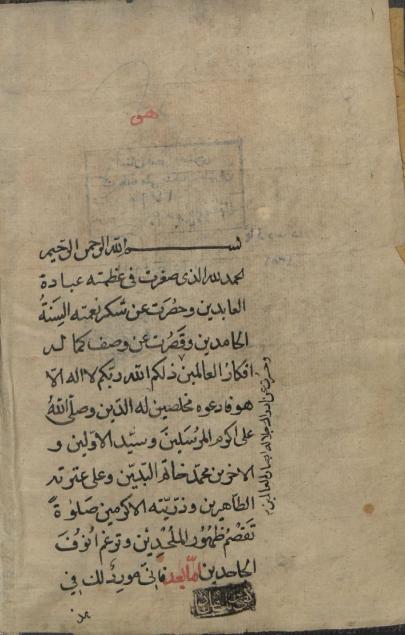 هو
بسم الله الرحمن الرحیم
الحمد لله الذی صغرت فی عظمته عبادة
العابدین وحصرت عن شکر نعمته السنةُ
الحامدین وقصرت عن وصف کماله
افکار العالمین ذلکم الله ربکم لا اله الا
هو فادعوه مخلصین له الدین وصلی اللهُ
علی اکرم المرسلین وسید الاولین و
الاخرین محمد خاتم النبیین وعلی عترته
الطاهرین وذریته الاکرمین صلوةً
تقصم ظهور الملحدین وترغم انوف
الجاحدین اما بعد فانی مورد لک فی